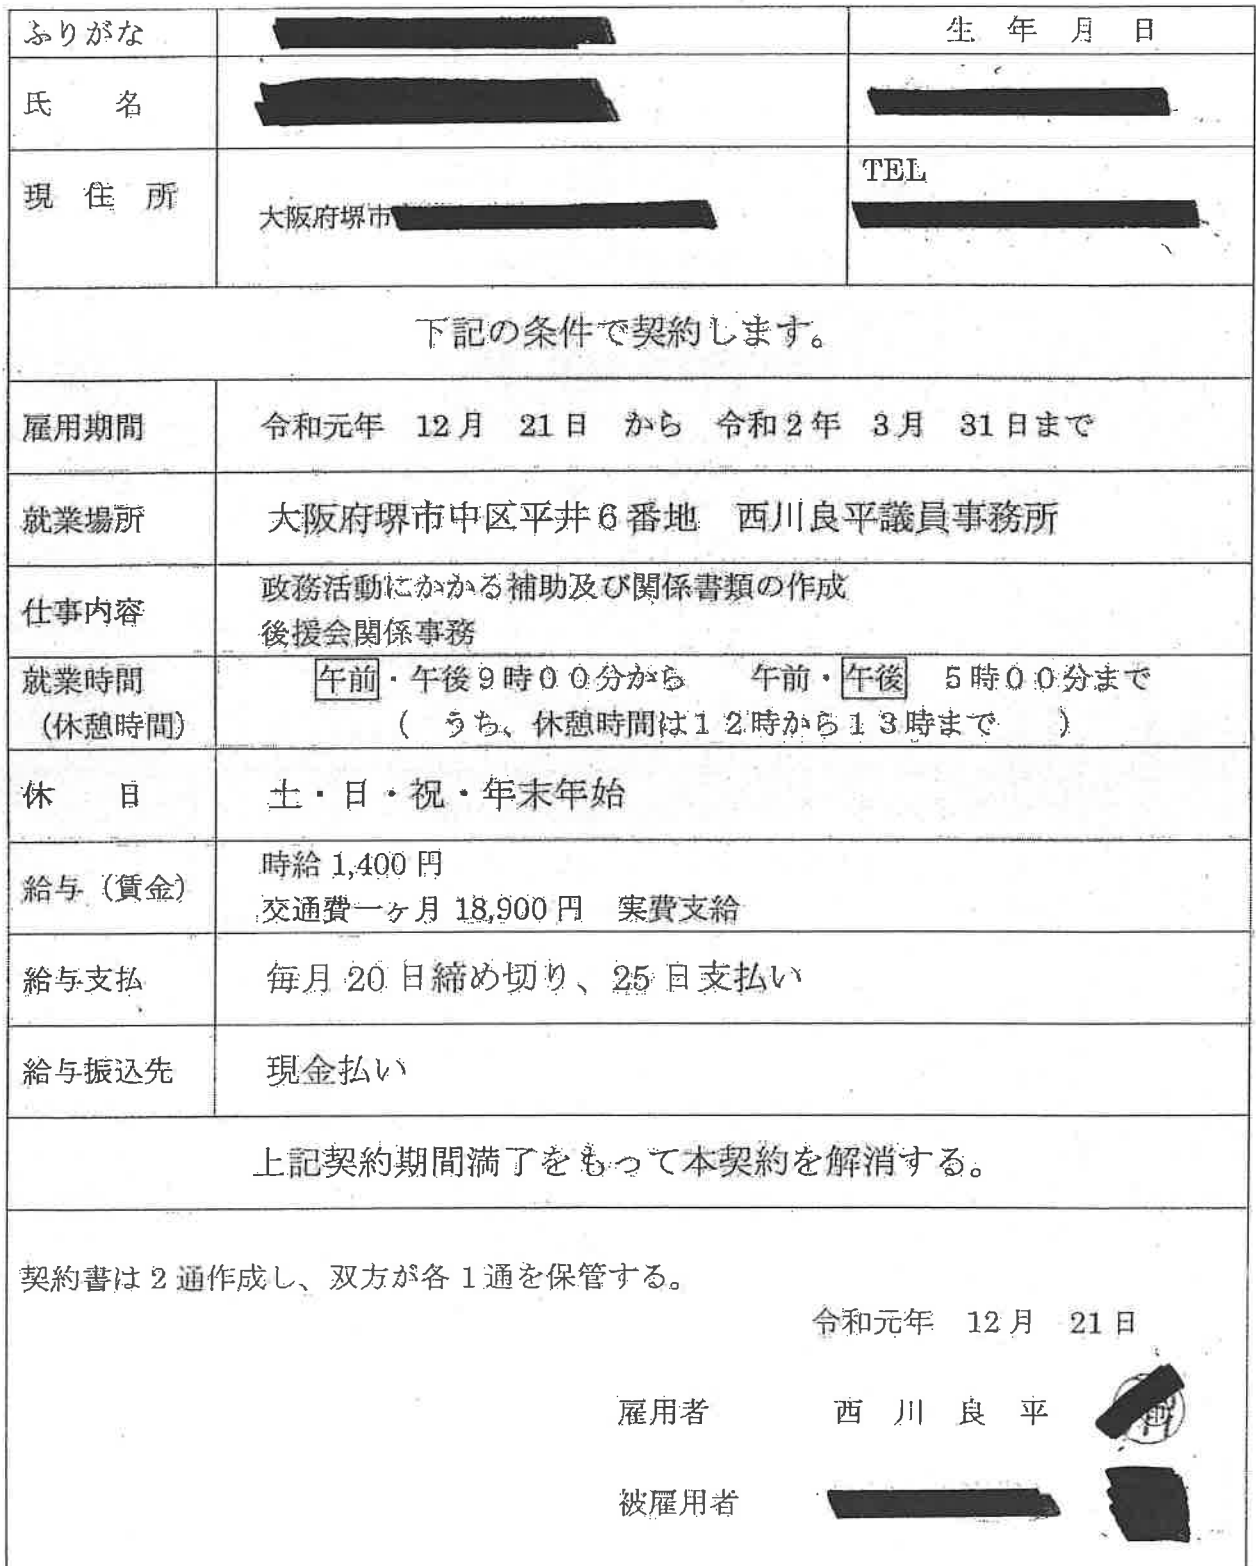 ふりがな
生 年 月 日
氏 名
現 住 所
大阪府堺市
TEL
下記の条件で契約します。
雇用期間 令和元年 12月 21日 から 令和2年 3月 31日まで
就業場所 大阪府堺市中区平井6番地 西川良平議員事務所
仕事内容 政務活動にかかる補助及び関係書類の作成
後援会関係事務
就業時間 午前・午後9時00分から 午前・午後 5時00分まで
(休憩時間) ( うち、休憩時間は12時から13時まで )
休 日 土・日・祝・年末年始
給与(賃金) 時給 1,400円
交通費一ヶ月 18,900円 実費支給
給与支払 毎月20日締め切り、25日支払い
給与振込先 現金払い
上記契約期間満了をもって本契約を解消する。
契約書は2通作成し、双方が各1通を保管する。
令和元年 12月 21日
雇用者 西 川 良 平
被雇用者